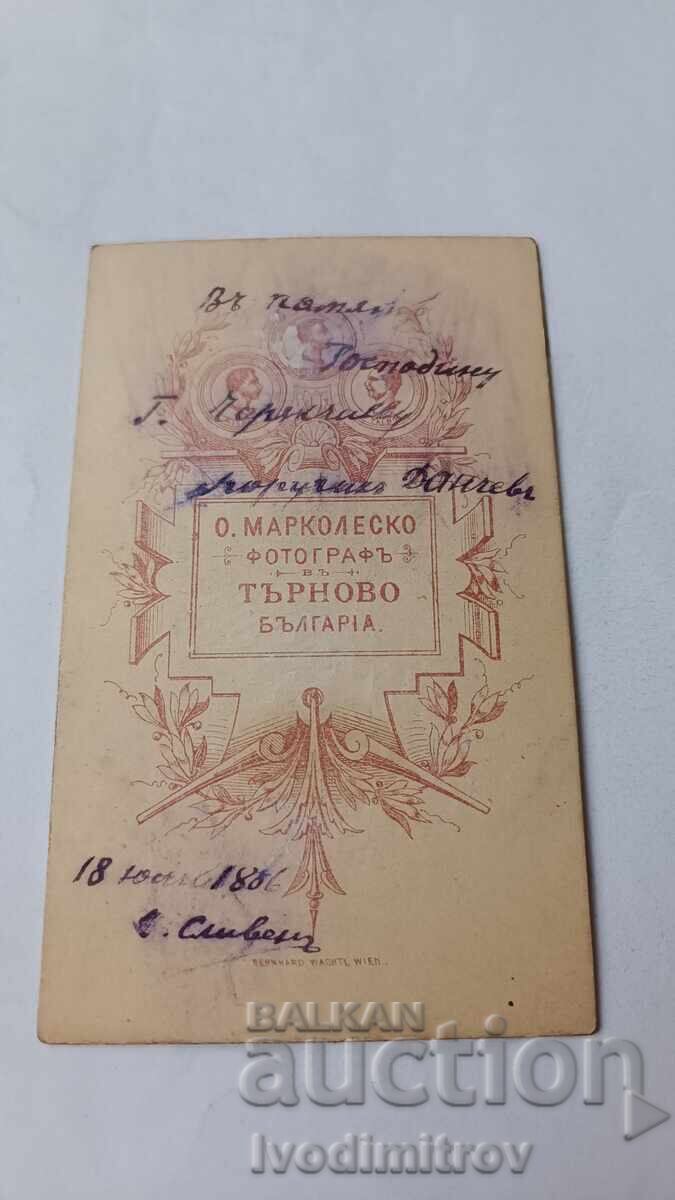 Въ память
Господину
Г.
Поручикъ Данчевъ
О. МАРКОЛЕСКО
ФОТОГРАФЪ
ВЪ
ТЪРНОВО
БЪЛГАРІА.
18 1886
Сливенъ
BERNHARD WACHTL WIEN.
BALKAN
auction
Ivodimitrov